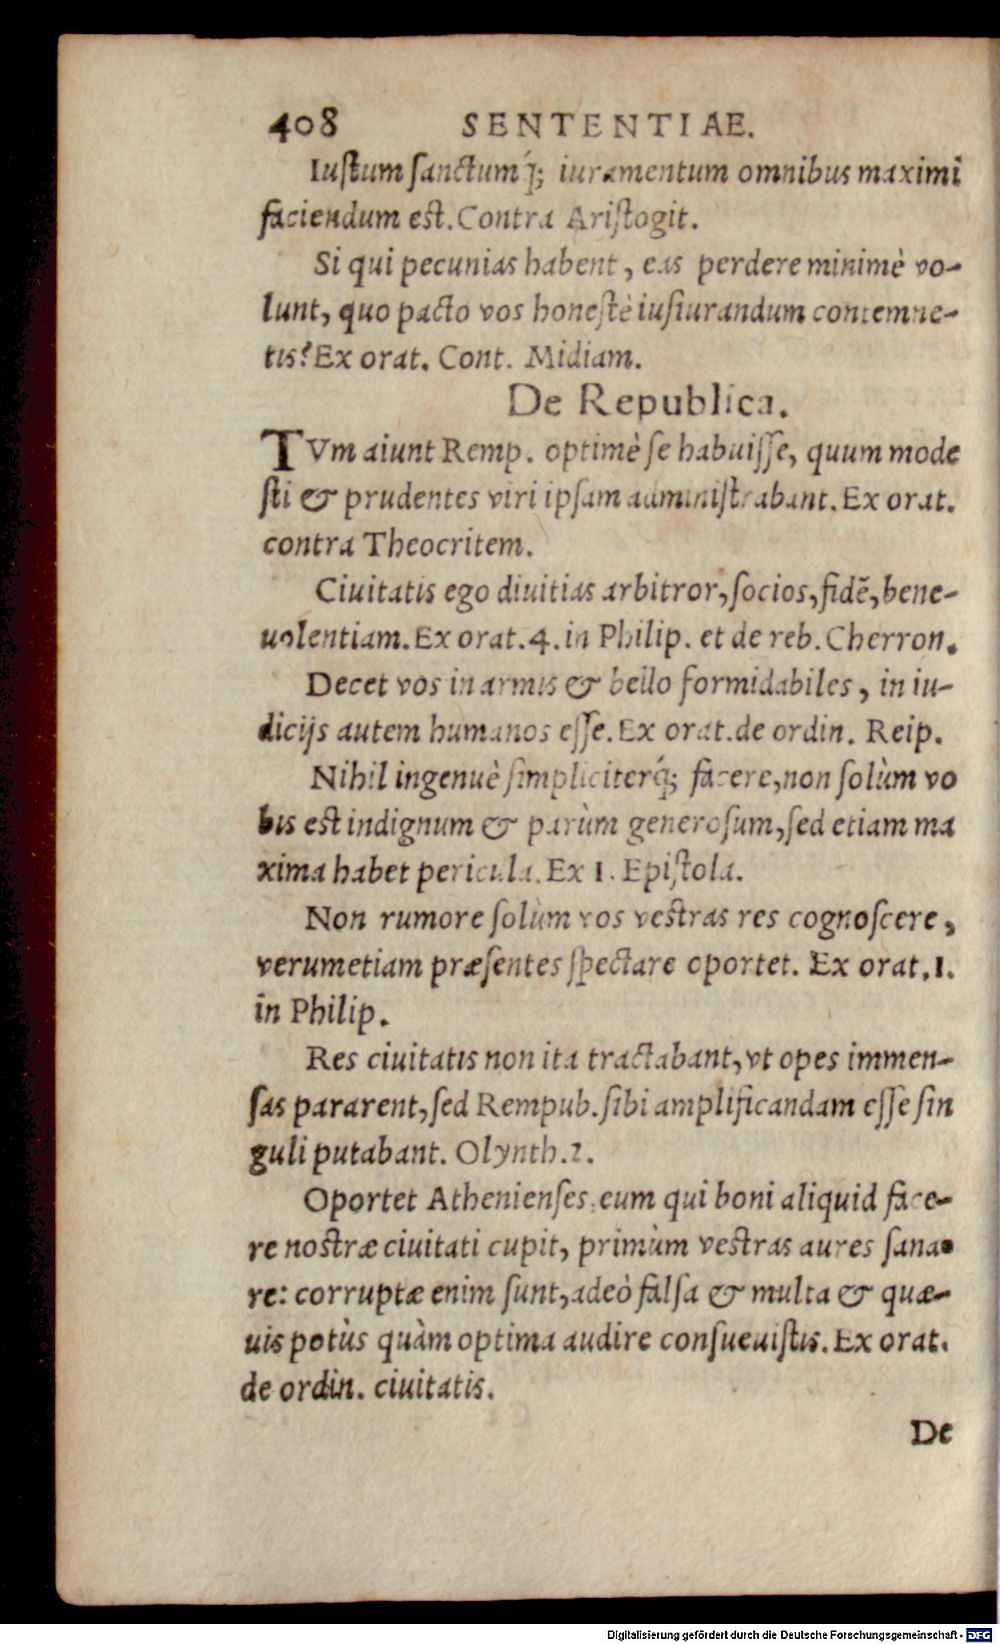 408 SENTENTIAE.
Iuſtum ſanctumq́; iuramentum omnibus maximi
faciendum est. Contra Ariſtogit.
Si qui pecunias habent, eas perdere minimè vo-
lunt, quo pacto vos honeſtè iuſiurandum contemne-
tis? Ex orat. Cont. Midiam.
De Republica.
TVm aiunt Remp. optimè ſe habuiſſe, quum mode
ſti & prudentes viri ipſam adminiſtrabant. Ex orat.
contra Theocritem.
Ciuitatis ego diuitias arbitror, ſocios, fidẽ, bene-
uolentiam. Ex orat. 4. in Philip. et de reb. Cherron.
Decet vos in armis & bello formidabiles, in iu-
dicijs autem humanos eſſe. Ex orat. de ordin. Reip.
Nihil ingenuè ſimpliciterq́; facere, non ſolùm vo
bis est indignum & parùm generoſum, ſed etiam ma
xima habet pericula. Ex 1. Epiſtola.
Non rumore ſolùm vos vestras res cognoſcere,
verumetiam præſentes ſpectare oportet. Ex orat. 1.
in Philip.
Res ciuitatis non ita tractabant, vt opes immen-
ſas pararent, ſed Rempub. ſibi amplificandam eſſe ſin
guli putabant. Olynth. 2.
Oportet Athenienſes, eum qui boni aliquid face-
re nostræ ciuitati cupit, primùm vestras aures ſana-
re: corruptæ enim ſunt, adeò falſa & multa & quæ-
uis potùs quàm optima audire conſueuiſtis. Ex orat.
de ordin. ciuitatis.
De
Digitalisierung gefördert durch die Deutsche Forschungsgemeinschaft - DFG